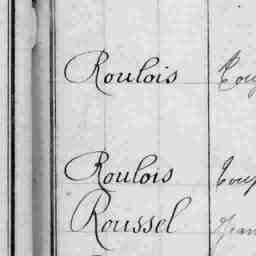 Roulois
Roulois
Roussel